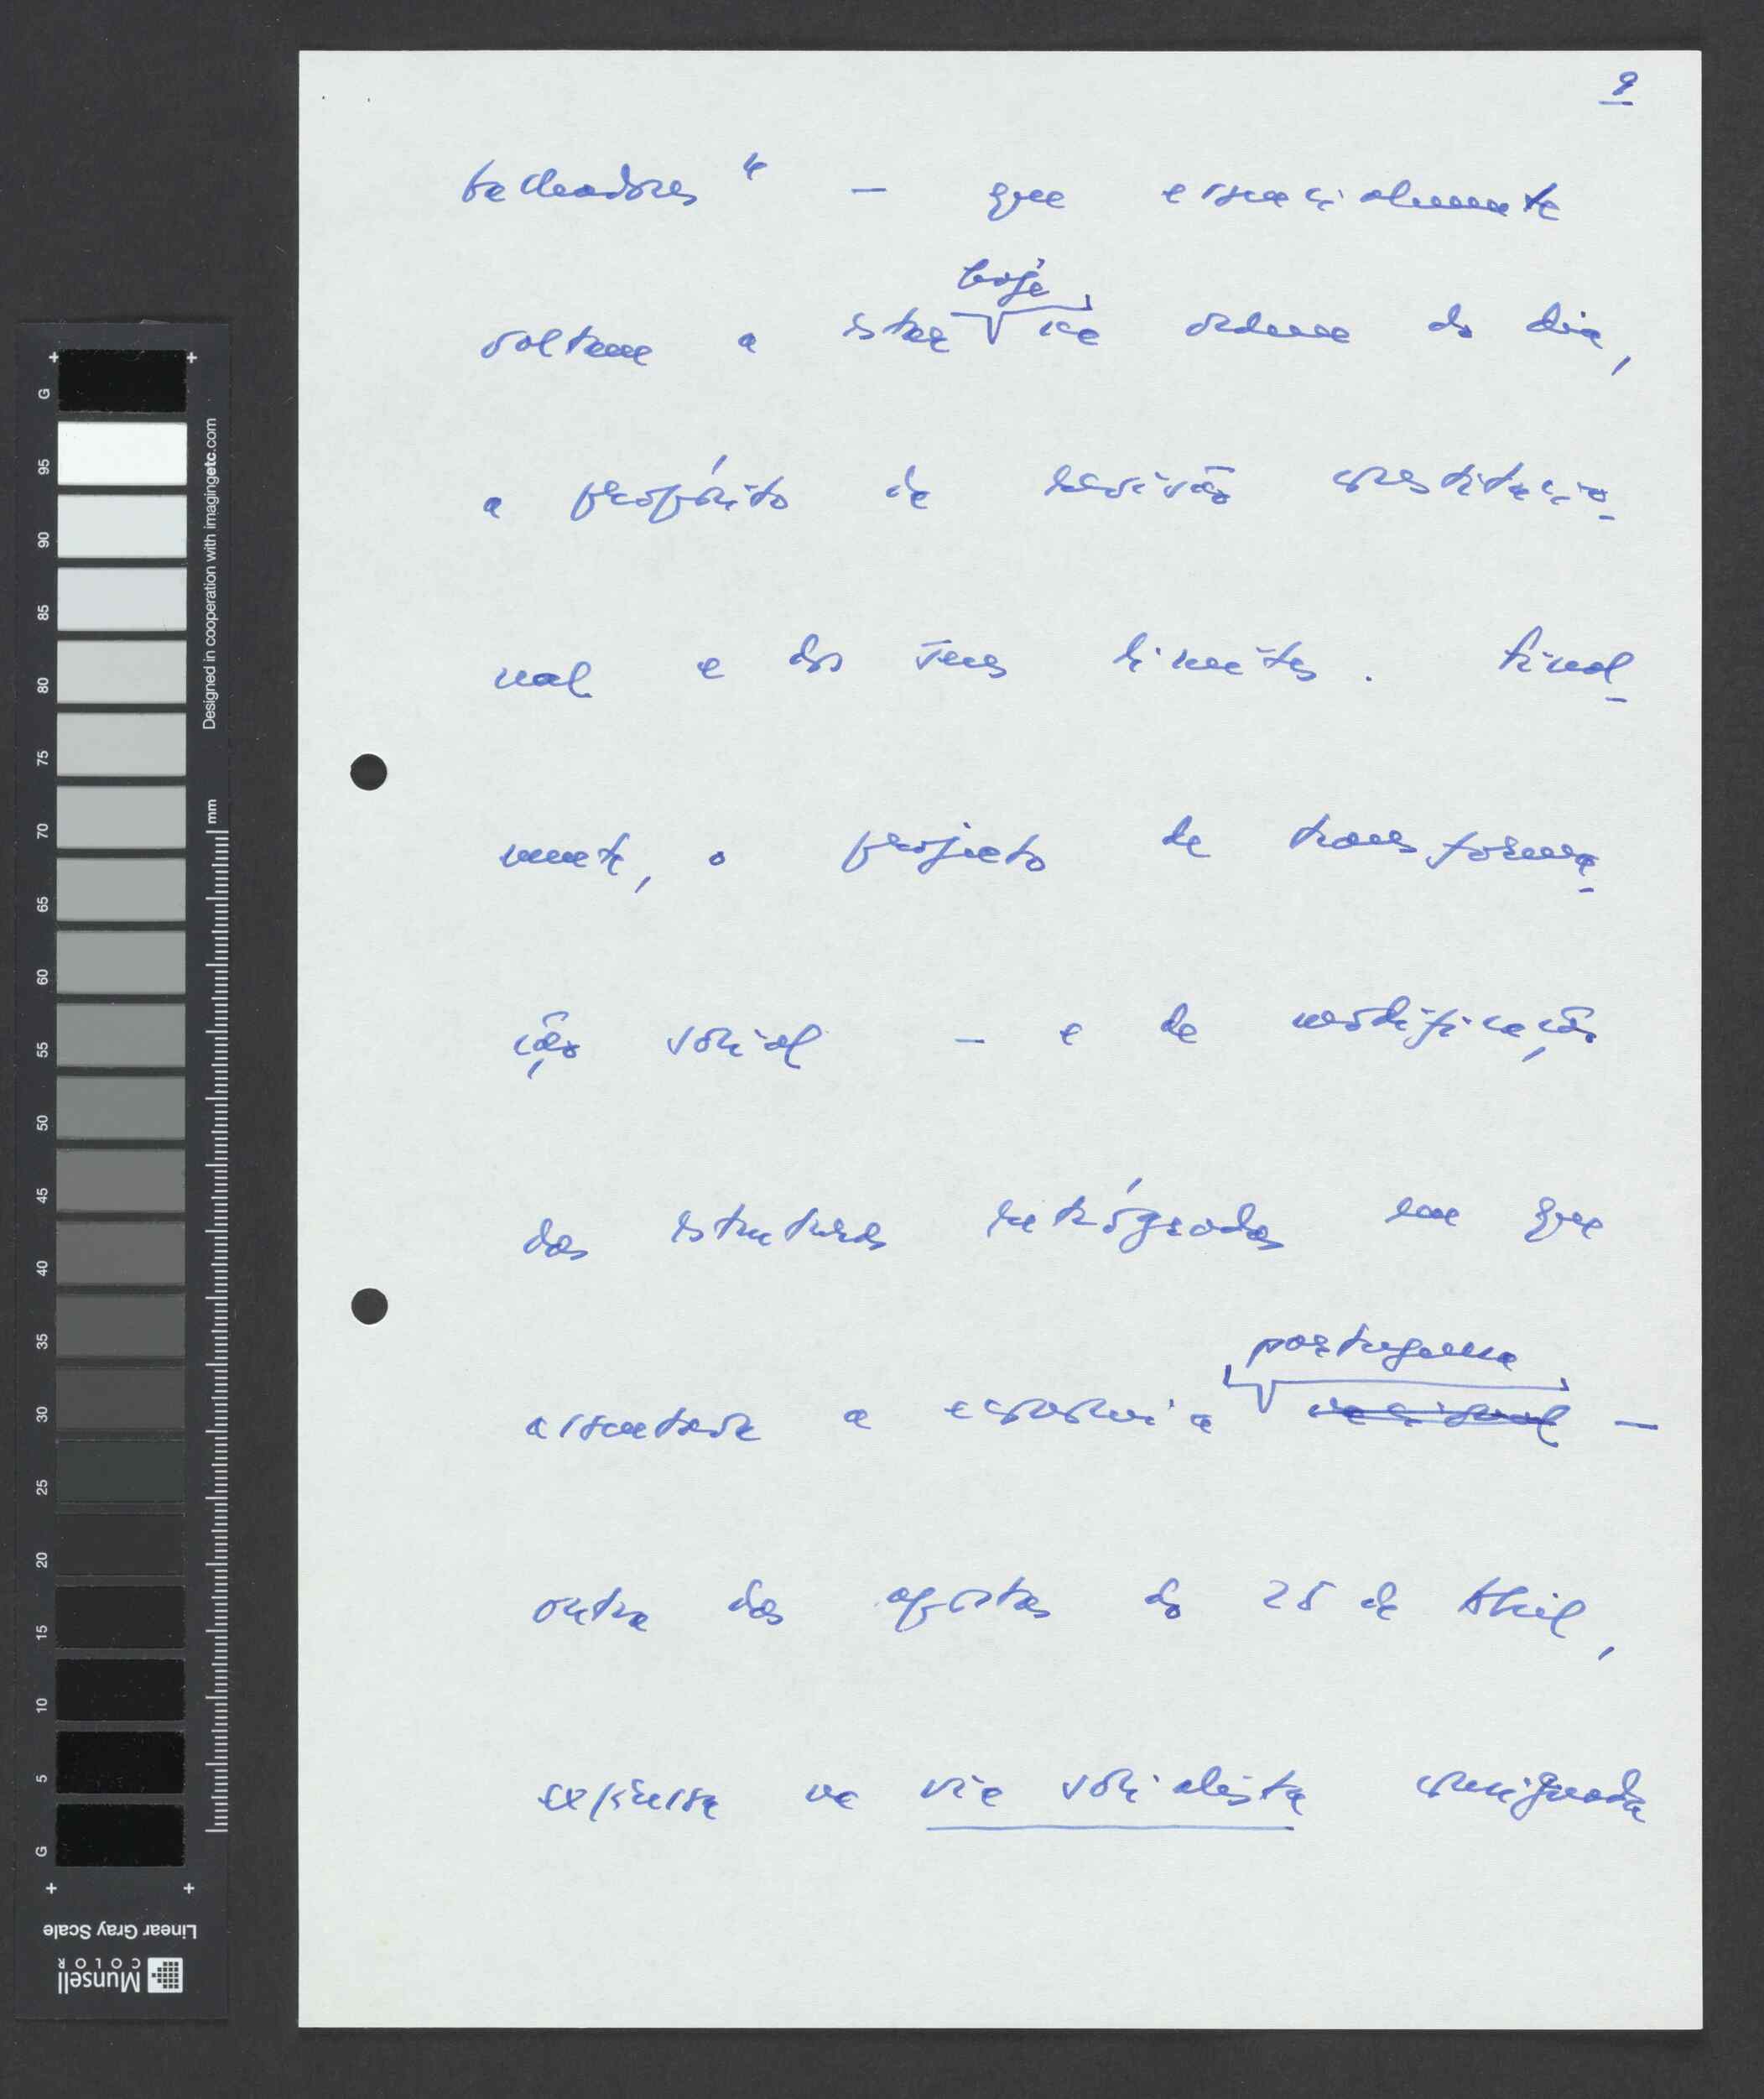 9
balhadores" — que essencialmente
hoje
voltam a estar na ordem do dia,
a propósito da revisão constitucio-
nal e dos seus limites. Final-
mente, o projecto de transforma-
ção social — e de modificação
das estruturas retrógradas em que
portuguesa
assentava a economia nacional —
outra das apostas do 25 de Abril,
expressa na via socialista consignada
G
95
90
85
80
75
70
65
60
55
50
45
40
35
30
25
20
15
10
5
G
Designed in cooperation with imagingetc.com
mm
Linear Gray Scale
Munsell
COLOR